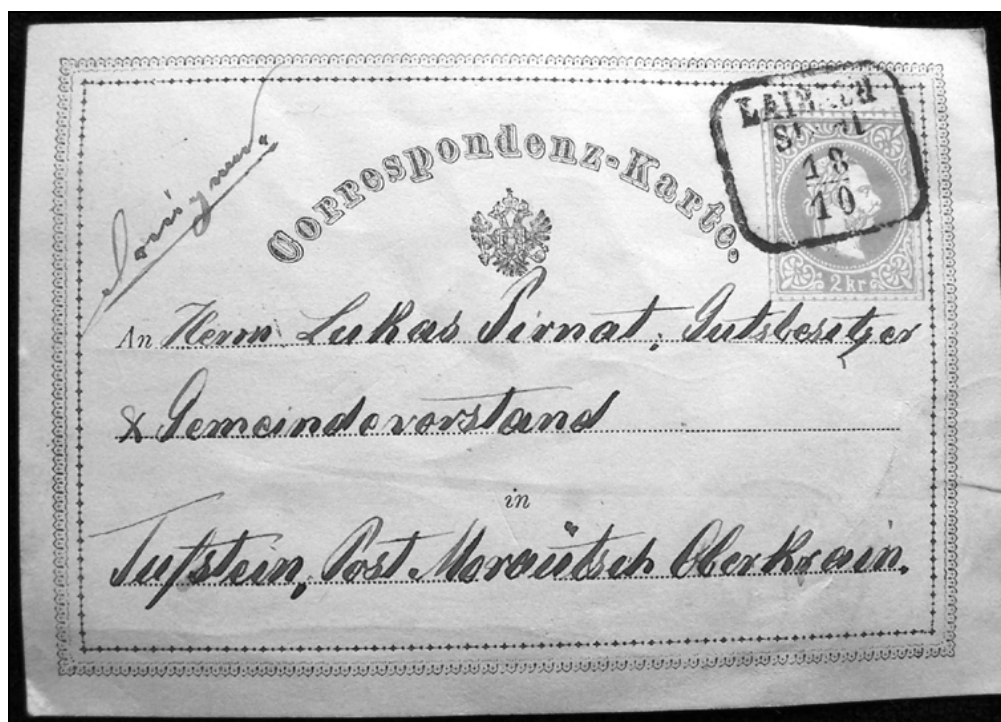 Correspondenz-Karte.
18
10
2 kr
An Herrn Lukas Pirnat, Gutsbesitzer
& Gemeindevorstand
in
Tufstein, Post Moraütsch Oberkrain.